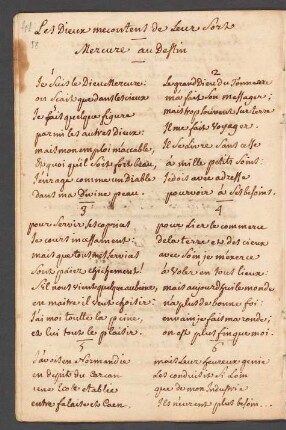 Les Dieux mecontent de Leur Sort
Mercure au Destin
Je Suis le Dieu Mercure:
on Scait que dans les cieux
Je fais quelque figure
parmi les autres dieux:
mais mon emploi maccable,
Et quoi quil Soit fort beau,
J'enrage comme un diable
dans ma Divine peau.
2
Le grand Dieu du Tonnerre
ma fait Son messager;
mais trop Souvent Sur terre
Il me fait voyager.
Il Se livre Sans cesse
à mille petits Soins:
Je dois avec adresse
pourvoir à Ses besoins.
3
pour Servir Ses caprices
Je cours incessament:
mais que tous mes Services
Sont païez chichement!
S'il nous vient quelque aubeine,
en maitre il Sçait choisir:
J'ai moi tout Seul la peine,
et Lui tout le plaisir.
4
pour Lier le commerce
de la terre et des cieux
avec Soin je m'exerce
à Voler en tous Lieux:
mais aujourd'hui le monde
n'a plus de bonne foi:
en vain je fais ma ronde;
on est plus fin que moi.
5
J'avois en Normandie
en dépit du Carcan
une Ecole établie
entre falaise et Caen.
6
mais Leur heureux genie
Les conduisit Si Loin
que de mon Industrie
Ils n'eurent plus besoin...